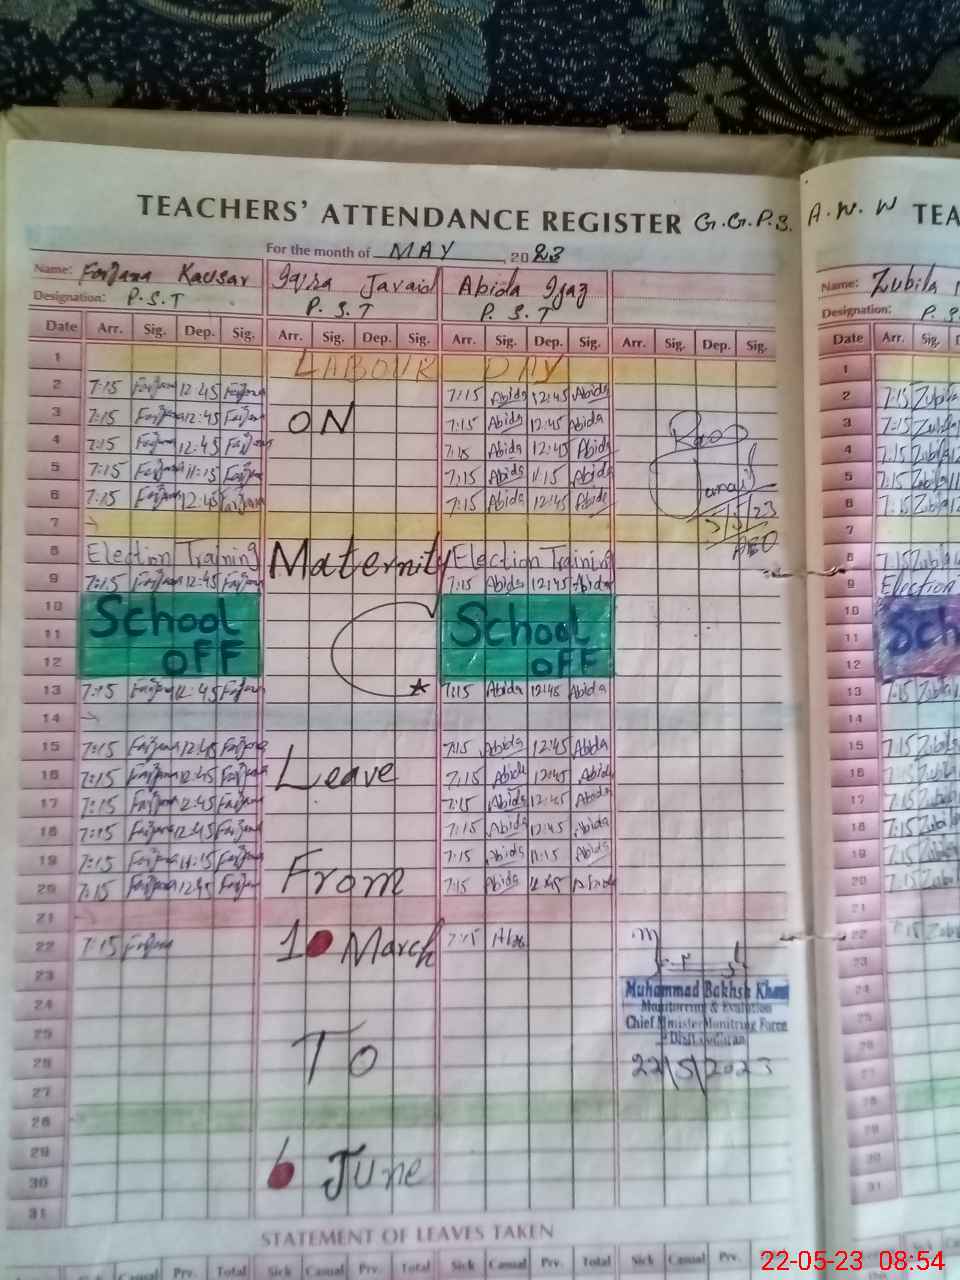 TEACHERS' ATTENDANCE REGISTER G.G.P.S. A.W.W TEA
For the month of MAY, 2023
Name: Farzana Kausar Iqra Javaid Abida Ijaz Name: Zubila
Designation: P.S.T P.S.T P.S.T Designation: P.S
Date Arr. Sig. Dep. Sig. Arr. Sig. Dep. Sig. Arr. Sig. Dep. Sig. Arr. Sig. Dep. Sig. Date Arr. Sig.
1 LABOUR DAY 1
2 7:15 Farzana 12:45 Farzana 7:15 Abida 12:45 Abida 2 7:15 Zubila
3 7:15 Farzana 12:45 Farzana ON 7:15 Abida 12:45 Abida 3 7:15 Zubila
4 7:15 Farzana 12:45 Farzana 7:15 Abida 12:45 Abida 4 7:15 Zubila
5 7:15 Farzana 11:15 Farzana 7:15 Abida 11:15 Abida 5 7:15 Zubila
6 7:15 Farzana 12:45 Farzana 7:15 Abida 12:45 Abida 6 7:15 Zubila
7 AEO 7
8 Election Training Maternity Election Training 8 7:15 Zubila
9 7:15 Farzana 12:45 Farzana 7:15 Abida 12:45 Abida 9 Election
10 School School 10
11 11 Sch
12 OFF OFF 12
13 7:15 Farzana 12:45 Farzana 7:15 Abida 12:45 Abida 13 7:15 Zubila
14 14
15 7:15 Farzana 12:45 Farzana 7:15 Abida 12:45 Abida 15 7:15 Zubila
16 7:15 Farzana 12:45 Farzana Leave 7:15 Abida 12:45 Abida 16 7:15 Zubila
17 7:15 Farzana 12:45 Farzana 7:15 Abida 12:45 Abida 17 7:15 Zubila
18 7:15 Farzana 12:45 Farzana 7:15 Abida 12:45 Abida 18 7:15 Zubila
19 7:15 Farzana 11:15 Farzana 7:15 Abida 11:15 Abida 19 7:15 Zubila
20 7:15 Farzana 12:45 Farzana From 7:15 Abida 12:45 Abida 20 7:15 Zubila
21 21
22 7:15 Farzana 10 March 7:15 Abida 22 7:15 Zubila
23 23
24 Muhammad Bakhsh Khan 24
Monitoring & Evalution
25 Chief Minister Monitring Force 25
26 To 26
27 22/5/2023 27
28 28
29 29
30 6 June 30
31 31
STATEMENT OF LEAVES TAKEN
Sick Casual Prv. Total Sick Casual Prv. Total Sick Casual Prv. Total Sick Casual Prv.
22-05-23 08:54